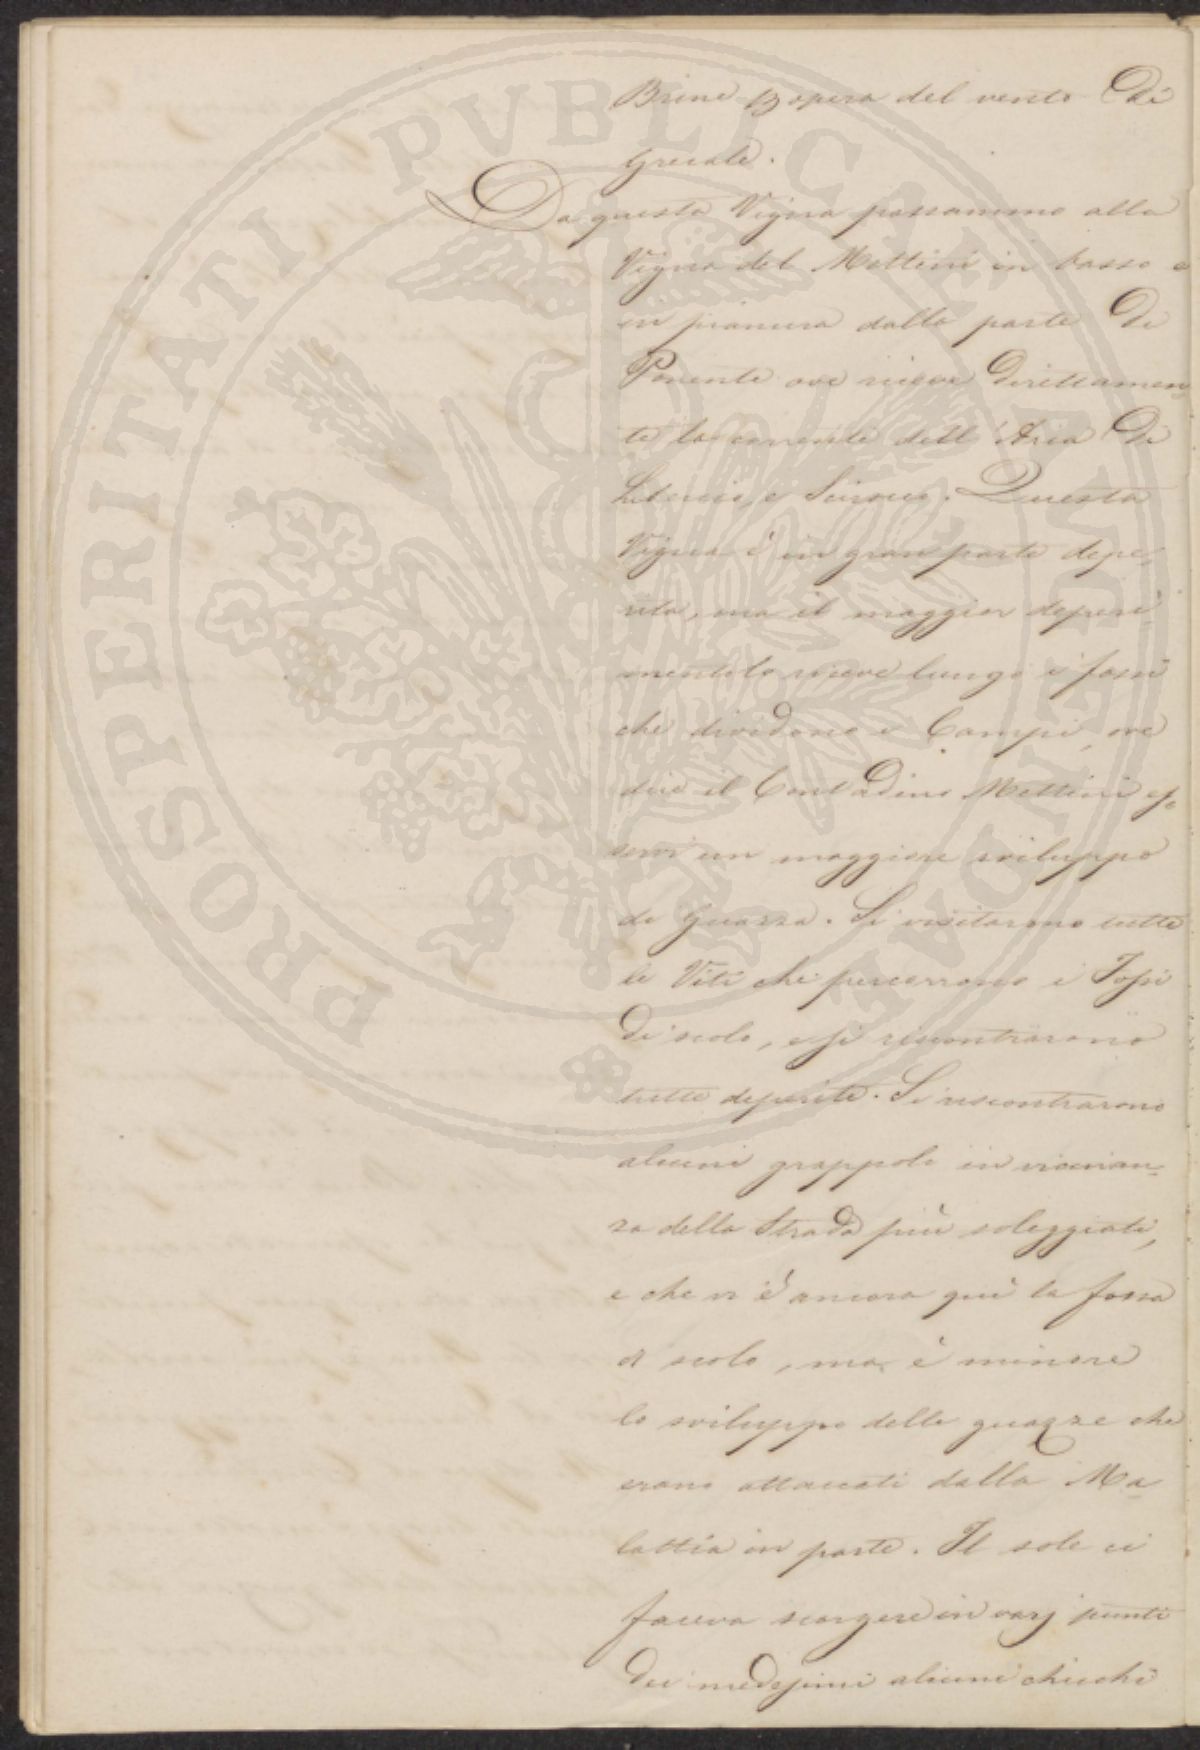 Brine p opera del vento Di
Grecale.
Da questa Vigna passammo alla
Vigna del Mattini in basso e
in pianura dalla parte Di
Ponente ove riceve Direttamen=
te la corrente dell'Aria Di
Libeccio, e Scirocco. Questa
Vigna è in gran parte depe=
rita, ma il maggior deperi=
mento lo riceve lungo i fossi
che dividono i Campi, ove
dice il Contadino Mattini es=
servi un maggiore sviluppo
di Guazza. Si visitarono tutte
le Viti che percorrono i Fossi
Di scolo, e si riscontrarono
tutte deperite. Si riscontrarono
alcuni grappoli in vicinan=
za della Strada più soleggiati,
e che vi è ancora quì la fossa
di scolo, ma è minore
lo sviluppo delle guazze che
erano attaccati dalla Ma=
lattia in parte. Il sole ci
faceva scorgere in varj punti
Dei medesimi alcuni chicchi
PROSPERITATI PVBLICAE AVGENDAE